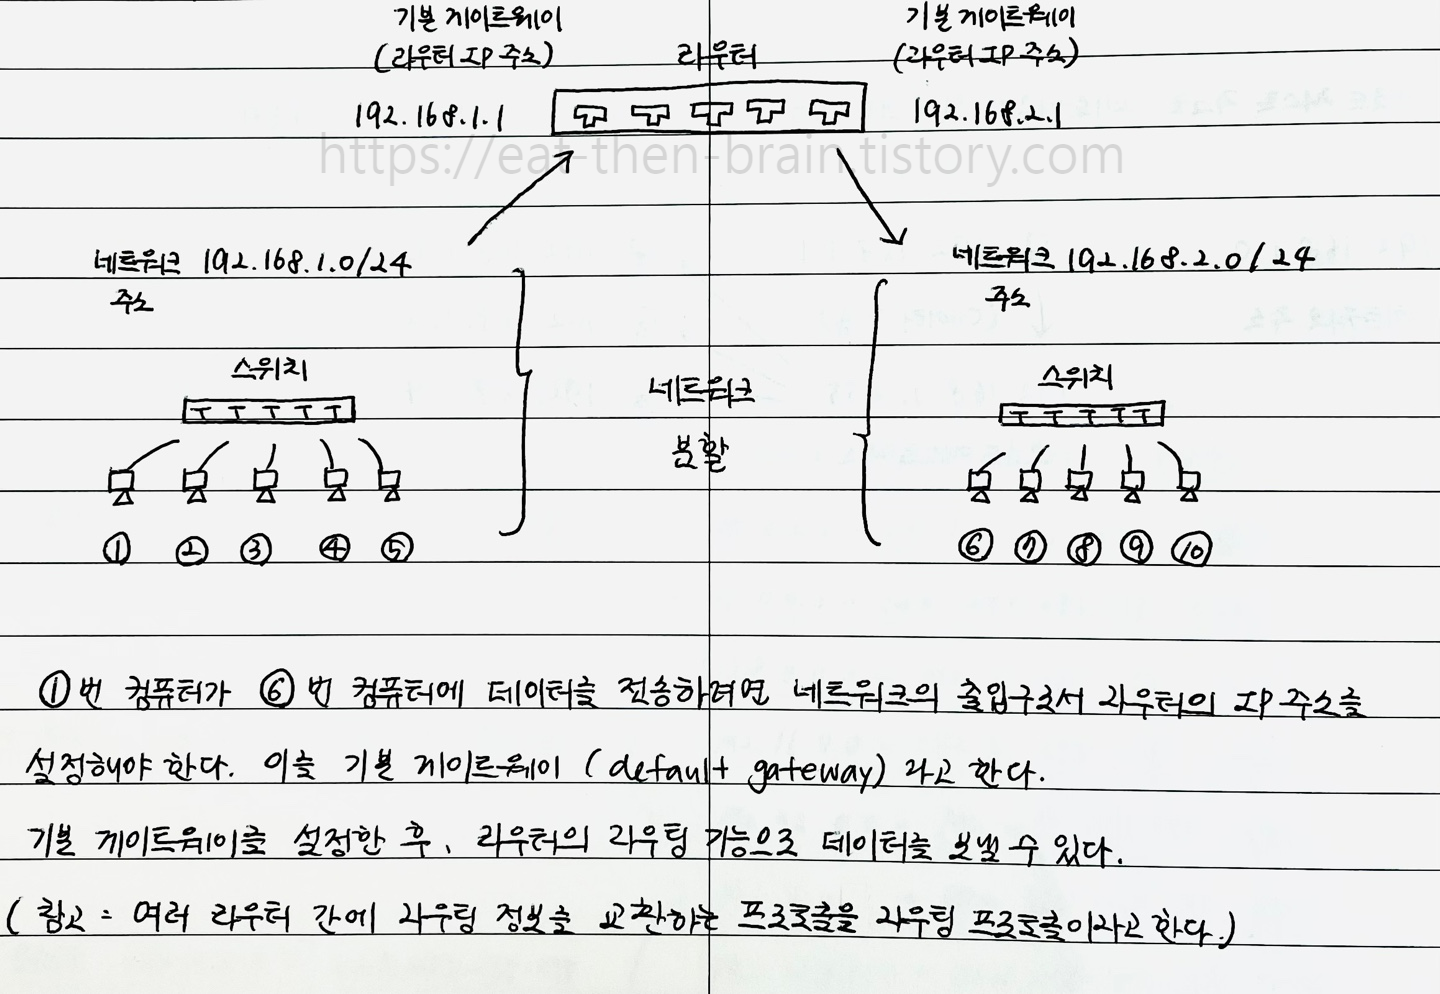 기본 게이트웨이
(라우터 IP 주소)
라우터
기본 게이트웨이
(라우터 IP 주소)
192.168.1.1
192.168.2.1
https://eat-then-brain.tistory.com
네트워크 192.168.1.0/24
주소
네트워크 192.168.2.0/24
주소
스위치
네트워크
분할
스위치
① ② ③ ④ ⑤
⑥ ⑦ ⑧ ⑨ ⑩
①번 컴퓨터가 ⑥번 컴퓨터에 데이터를 전송하려면 네트워크의 출입구로서 라우터의 IP 주소를
설정해야 한다. 이를 기본 게이트웨이 (default gateway) 라고 한다.
기본 게이트웨이를 설정한 후, 라우터의 라우팅 기능으로 데이터를 보낼 수 있다.
(참고 : 여러 라우터 간에 라우팅 정보를 교환하는 프로토콜을 라우팅 프로토콜이라고 한다.)